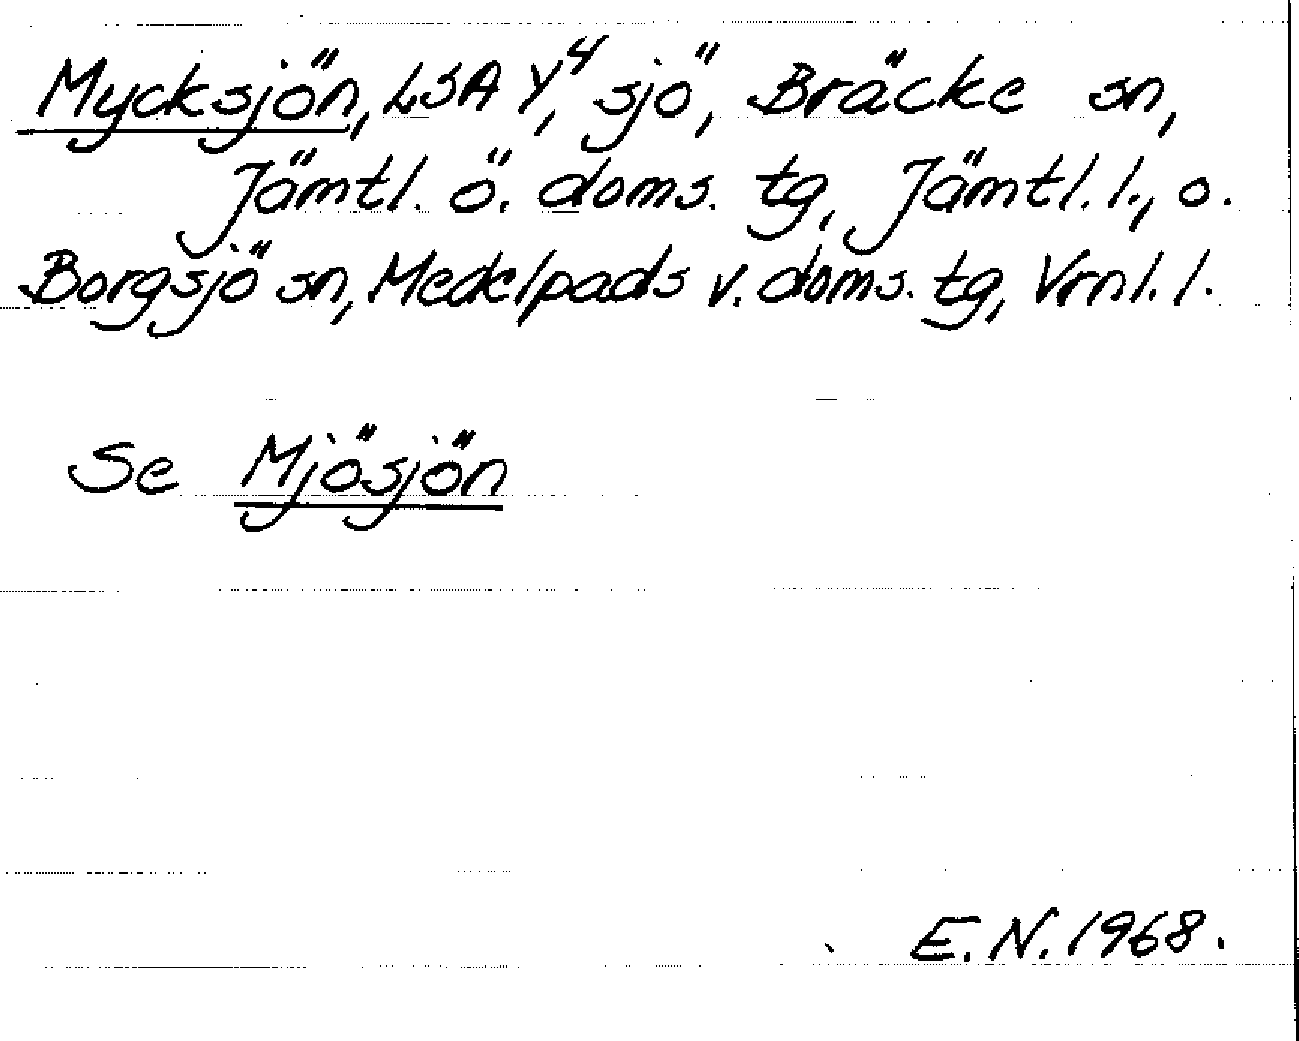 Mycksjön, LSA Y⁴, sjö, Bräcke sn,
Jämtl. ö. doms. tg, Jämtl. l., o.
Borgsjö sn, Medelpads v. doms. tg, Vrnl. l.
Se Mjösjön
E. N. 1968.